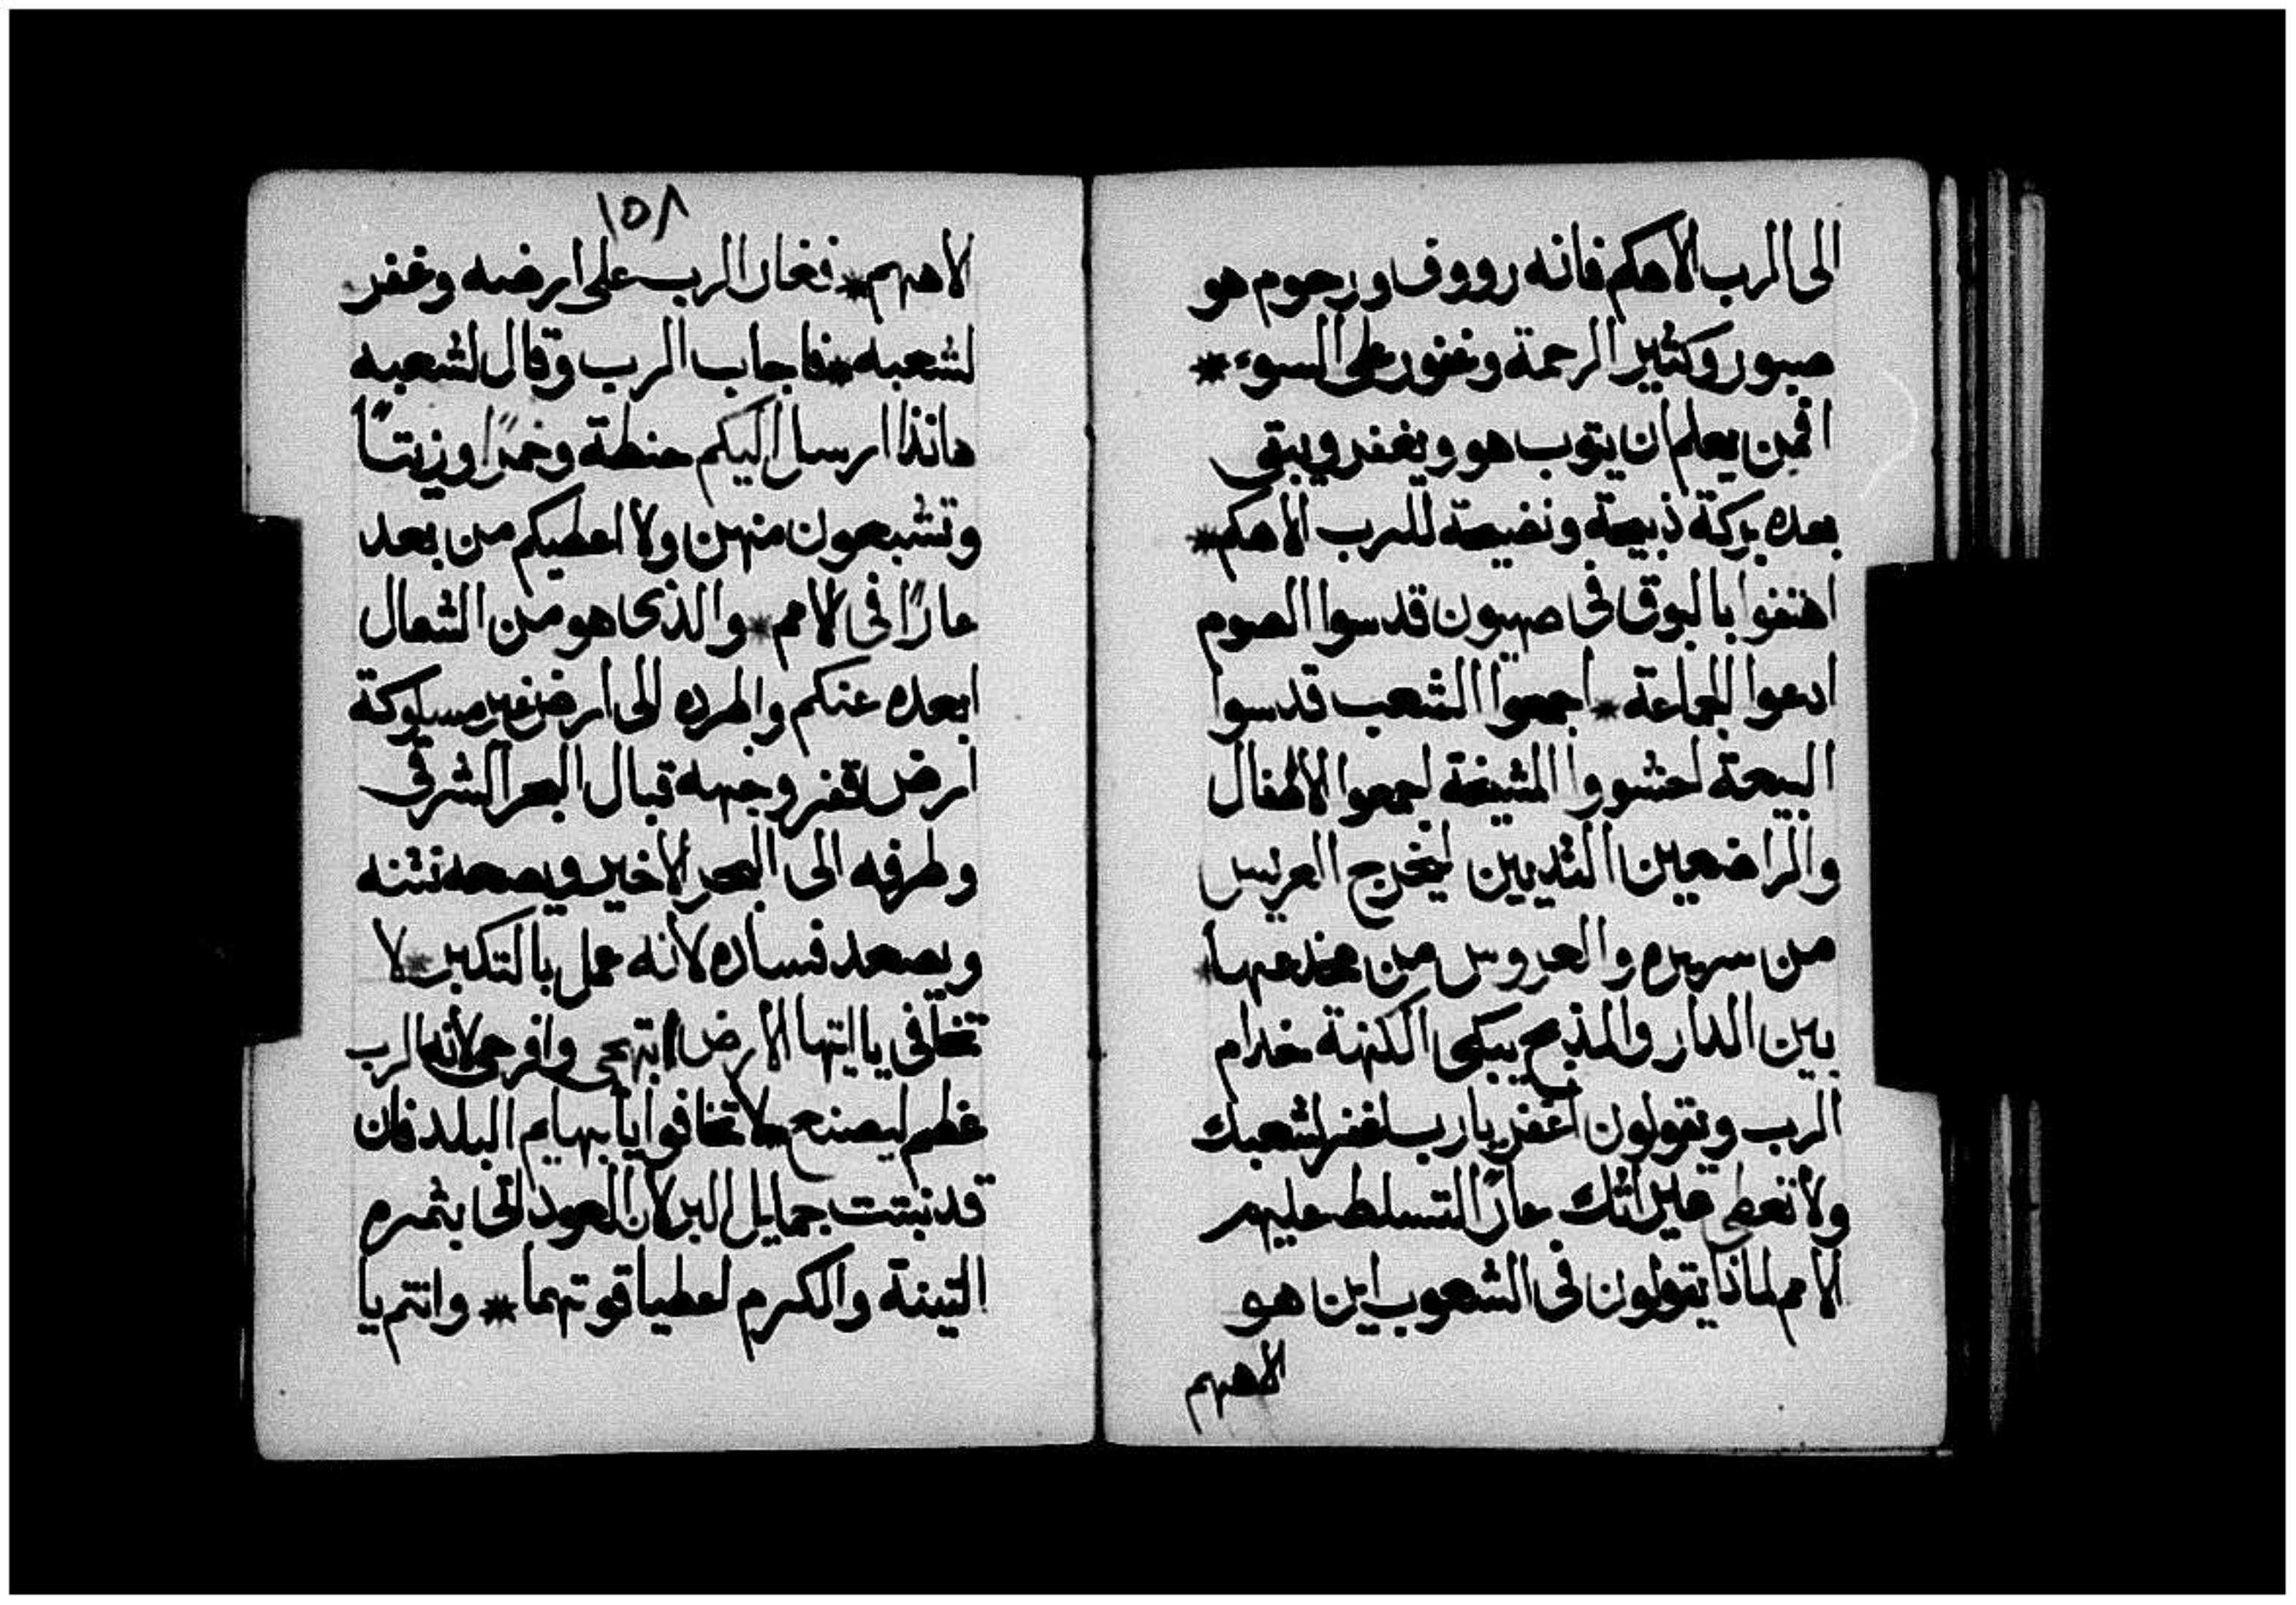 الى الرب الاهكم فانه رووف ورحوم هو
صبور وكثير الرحمة وغفور على السوء *
افمن يعلم ان يتوب هو ويغفر ويبقى
بعده بركة ذبيحة ونضيحة للرب الاهكم *
اهتفوا بالبوق فى صهيون قدسوا الصوم
ادعوا الجماعة * اجمعوا الشعب قدسوا
البيعة احشووا المشيخة اجمعوا الاطفال
والراضعين الثديين ليخرج العريس
من سريره والعروس من مخدعها *
بين الدار والمذبح يبكى الكهنة خدام
الرب ويقولون اغفر يارب اغفر لشعبك
ولا تعطى ميراثك عارًا لتتسلط عليهم
الامم لماذا يقولون فى الشعوب اين هو
الاههم
١٥٨
الاههم * فغار الرب على ارضه وغفر
لشعبه * فاجاب الرب وقال لشعبه
هانذا ارسل اليكم حنطة وخمرًا وزيتًا
وتشبعون منهن ولا اعطيكم من بعد
عارًا فى الامم * والذى هو من الشمال
ابعده عنكم واطرده الى ارض غير مسلوكة
ارض قفر وجهه قبال البحر الشرقى
وطرفه الى البحر الاخير ويصعد نتنه
ويصعد فساده لانه عمل بالتكبر * لا
تخافى يا ايتها الارض ابتهجى وافرحى لان الرب
عظم ليصنع لا تخافوا يا بهايم البلد فان
قد نبتت جمايل البر لان العود اتى بثمره
التينة والكرم اعطيا قوتهما * وانتم يا